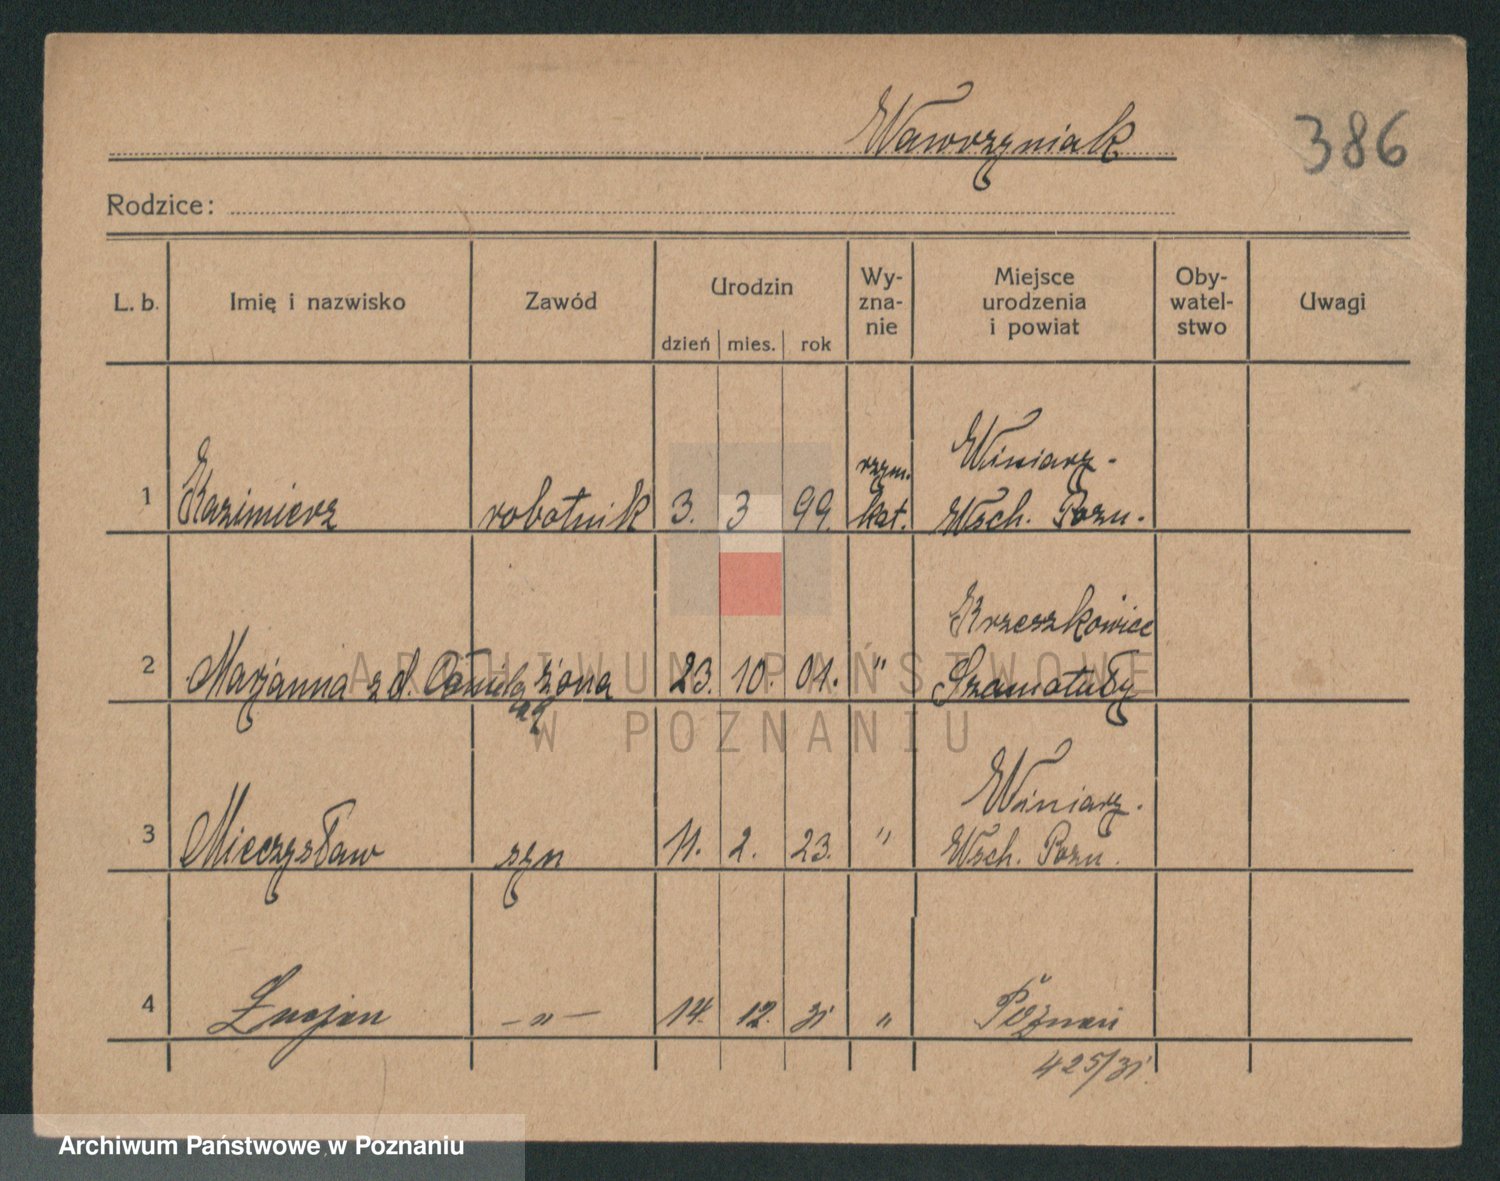 Wawrzyniak
386
Rodzice:
L. b. Imię i nazwisko Zawód Urodzin dzień mies. rok Wy-zna-nie Miejsce urodzenia i powiat Oby-watel-stwo Uwagi
1 Kazimierz robotnik 3. 3 99. rzym. kat. Winiary - Wsch. Pozn.
2 Marjanna z d. żona 23. 10. 01. " Krzeszkowice Szamotuły
3 Mieczysław syn 11. 2. 23. " Winiary. Wsch. Pozn.
4 -"- 14. 12. 31 " Poznań
425/31.
ARCHIWUM PAŃSTWOWE
W POZNANIU
Archiwum Państwowe w Poznaniu